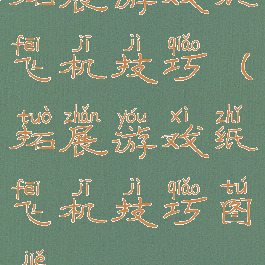 fēi jī jì qiǎo
飞机技巧(
tuò zhǎn yóu xì zhǐ
拓展游戏纸
fēi jī jì qiǎo tú
飞机技巧图
jiě